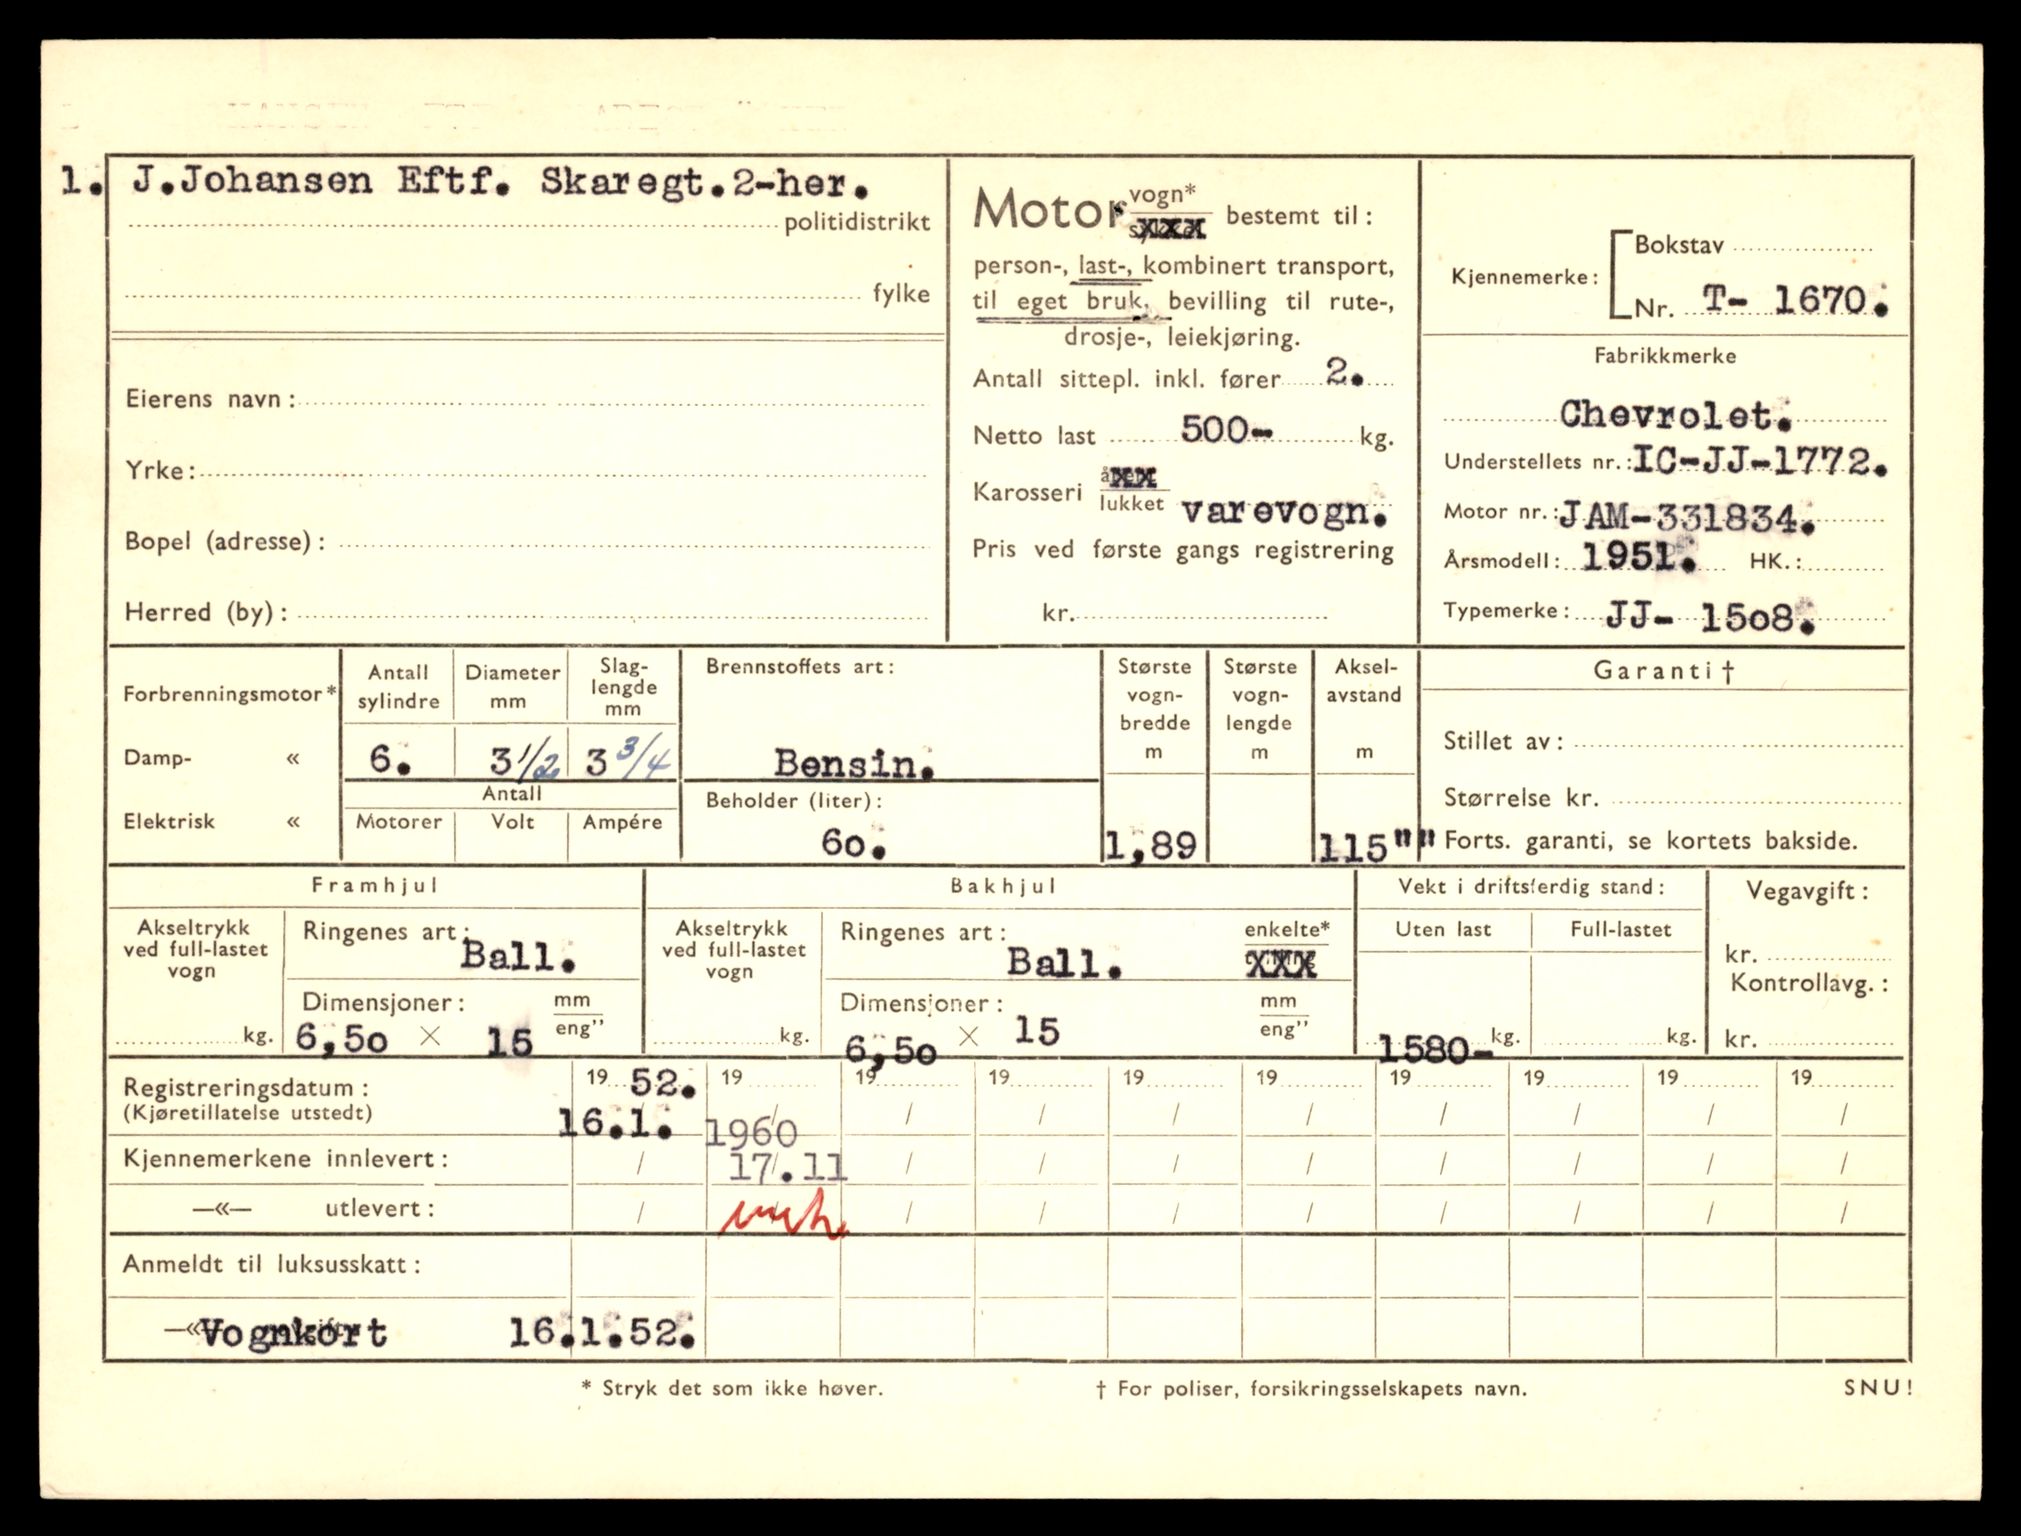 1. J.Johansen Eftf. Skaregt.2-her.
politidistrikt
fylke
Eierens navn:
Yrke:
Bopel (adresse):
Herred (by):
Motor vogn* bestemt til:
person-, last-, kombinert transport,
til eget bruk, bevilling til rute-,
drosje-, leiekjøring.
Antall sittepl. inkl. fører 2.
Netto last 500- kg.
Karosseri lukket varevogn.
Pris ved første gangs registrering
kr.
Kjennemerke: Bokstav
Nr. T- 1670.
Fabrikkmerke
Chevrolet.
Understellets nr.: IC-JJ-1772.
Motor nr.: JAM-331834.
Årsmodell: 1951. HK.:
Typemerke: JJ- 15o8.
Forbrenningsmotor*
Damp- «
Elektrisk «
Antall sylindre
6.
Diameter mm
3 1/2
Slag-
lengde
mm
3 3/4
Antall
Motorer Volt Ampére
Brennstoffets art:
Bensin.
Beholder (liter):
6o.
Største
vogn-
bredde
m
1,89
Største
vogn-
lengde
m
Aksel-
avstand
m
115""
Garanti †
Stillet av:
Størrelse kr.
Forts. garanti, se kortets bakside.
Framhjul
Akseltrykk
ved full-lastet
vogn
kg.
Ringenes art: Ball.
Dimensjoner: mm
eng"
6,5o × 15
Bakhjul
Akseltrykk
ved full-lastet
vogn
kg.
Ringenes art: Ball. enkelte*
XXX
Dimensjoner: mm
eng"
6,5o × 15
Vekt i driftsferdig stand:
Uten last Full-lastet
1580- kg. kg.
Vegavgift:
kr.
Kontrollavg.:
kr.
Registreringsdatum: 19 52. 19 19 19 19 19 19 19 19 19
(Kjøretillatelse utstedt) 16.1. / / / / / / / / /
1960
Kjennemerkene innlevert: / 17.11 / / / / / / / /
—«— utlevert: / / / / / / / / /
Anmeldt til luksusskatt:
—«— Vognkort 16.1.52.
* Stryk det som ikke høver.
† For poliser, forsikringsselskapets navn.
SNU!